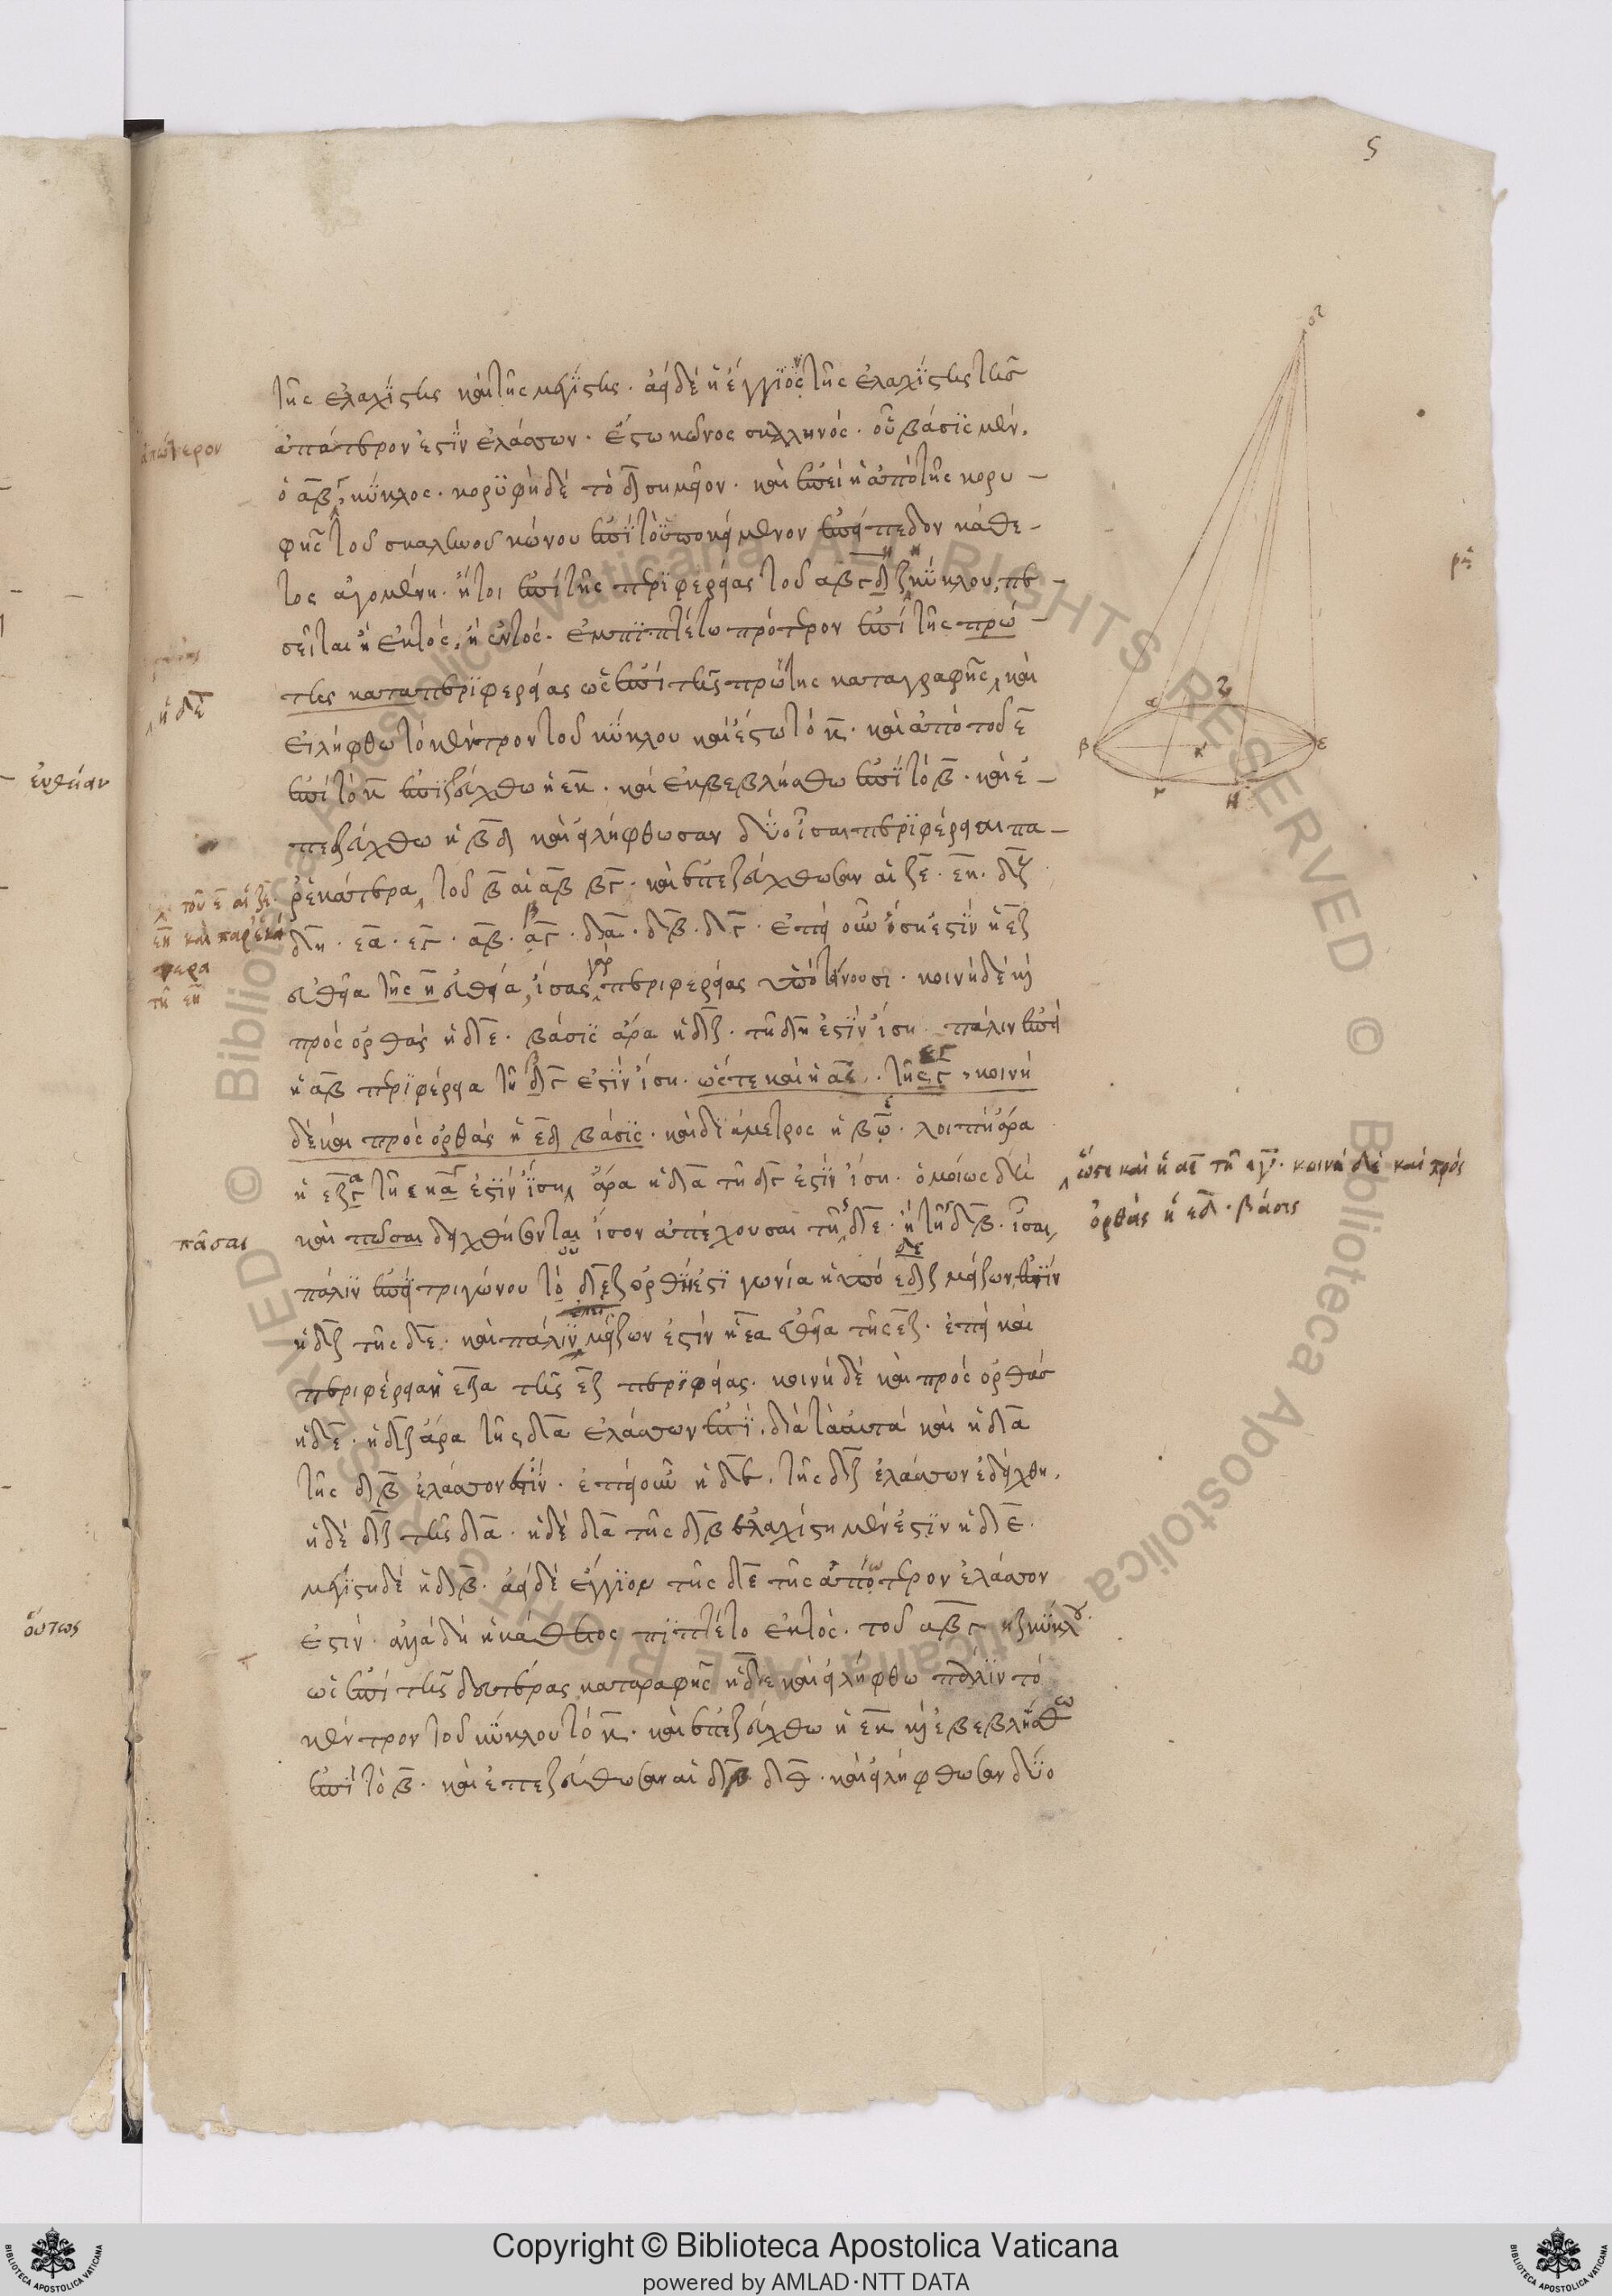 ς
τῆς ἐλαχίστης καὶ τῆς μεγίστης · ἀεὶ δὲ ἡ ἔγγιον τῆς ἐλαχίστης τῆς
ἀπώτερον ἐστὶν ἐλάσσων · ἔστω κῶνος σκαληνός · οὗ βάσις μὲν
ὁ αβγ κύκλος · κορυφὴ δὲ τὸ δ σημεῖον · καὶ ἐπεὶ ἡ ἀπὸ τῆς κορυ-
φῆς τοῦ σκαληνοῦ κώνου ἐπὶ τὸ ὑποκείμενον ἐπίπεδον κάθε-
τος ἀγομένη · ἤτοι ἐπὶ τῆς περιφερείας τοῦ αβγ κύκλου πε-
σεῖται ἢ ἐκτός, ἢ ἐντός · ἐμπιπτέτω πρότερον ἐπὶ τῆς πρώ-
της κατα περιφερείας ὡς ἐπὶ τῆς πρώτης καταγραφῆς καὶ
εἰλήφθω τὸ κέντρον τοῦ κύκλου καὶ ἔστω τὸ κ · καὶ ἀπὸ τοῦ ε
ἐπὶ τὸ κ ἐπιζεύχθω ἡ εκ · καὶ ἐκβεβλήσθω ἐπὶ τὸ β · καὶ ἐ-
πεζεύχθω ἡ βδ καὶ εἰλήφθωσαν δύο ἴσαι περιφέρειαι πα-
ρ ἑκάτερα τοῦ β αἱ αβ βγ · καὶ ἐπεζεύχθωσαν αἱ ζε · εη · δζ
δη · εα · εγ · αβ · βγ · δα · δβ · δγ · ἐπεὶ οὖν ἴση ἐστὶν ἡ εζ
εὐθεῖα τῆς η εὐθεία, ἴσας γὰρ περιφερείας ὑποτείνουσι · κοινὴ δὲ καὶ
πρὸς ὀρθὰς ἡ δε · βάσις ἄρα ἡ δζ · τῇ δη ἐστὶν ἴση · πάλιν ἐπεὶ
ἡ αβ περιφέρεια τῇ βγ ἐστὶν ἴση · ὥστε καὶ ἡ αε · τῆς εγ · κοινὴ
δὲ καὶ πρὸς ὀρθὰς ἡ εδ βάσις · καὶ διάμετρος ἡ βε · λοιπὴ ἄρα
ἡ εζα τῇ εηγ ἐστὶν ἴση ἄρα ἡ δα τῇ δγ ἐστὶν ἴση · ὁμοίως δὲ
καὶ πᾶσαι δειχθήσονται ἴσον ἀπέχουσαι τῆς δε · ἢ τῆς δβ · ἴσαι
πάλιν ἐπεὶ τριγώνου τοῦ δεζ ὀρθή ἐστι γωνία ἡ ὑπὸ δεζ μείζων ἐστὶν
ἡ δζ τῆς δε · καὶ πάλιν μείζων ἐστὶν ἡ εα εὐθεῖα τῆς εζ · ἐπεὶ καὶ
περιφέρεια ἡ εζα τῆς εζ περιφερείας · κοινὴ δὲ καὶ πρὸς ὀρθὰς
ἡ δε · ἡ δζ ἄρα τῆς δα ἐλάσσων ἐστί · διὰ τὰ αὐτὰ καὶ ἡ δα
τῆς δβ ἐλάσσον ἐστίν · ἐπεὶ οὖν ἡ δε · τῆς δζ ἐλάσσων ἐδείχθη ·
ἡ δὲ δζ τῆς δα · ἡ δὲ δα τῆς δβ ἐλαχίστη μὲν ἐστὶν ἡ δε ·
μεγίστη δὲ ἡ δβ · ἀεὶ δὲ ἔγγιον τῆς δε τῆς ἀπώτερον ἐλάσσον
ἐστίν · ἀλλὰ δὴ ἡ κάθετος πιπτέτω ἐκτός · τοῦ αβγ ηζ κύκλου
ὡς ἐπὶ τῆς δευτέρας καταγραφῆς ἡ δε καὶ εἰλήφθω πάλιν τὸ
κέντρον τοῦ κύκλου τὸ κ · καὶ ἐπεζεύχθω ἡ εκ καὶ ἐβεβλήσθω
ἐπὶ τὸ β · καὶ ἐπεζεύχθωσαν αἱ δβ δθ · καὶ εἰλήφθωσαν δύο
ἀπώτερον
ἡ δε
τοῦ ε αἱ ζε
εη καὶ παρ ἑκά
τερα
τῇ εη
πᾶσαι
ὥστε καὶ ἡ αε τῇ εγ · κοινὴ δὲ καὶ πρὸς
ὀρθὰς ἡ εδ · βάσις
εὐθεῖαν
οὕτως
δ
α
ζ
β
κ
ε
γ
η
© Biblioteca Apostolica Vaticana ALL RIGHTS RESERVED
Copyright © Biblioteca Apostolica Vaticana
powered by AMLAD·NTT DATA
BIBLIOTECA APOSTOLICA VATICANA
BIBLIOTECA APOSTOLICA VATICANA